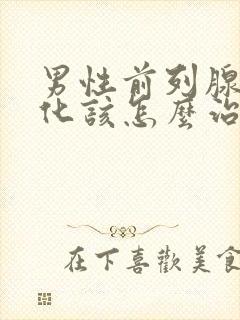 男性前列腺
化該怎麼治
在下喜歡美食